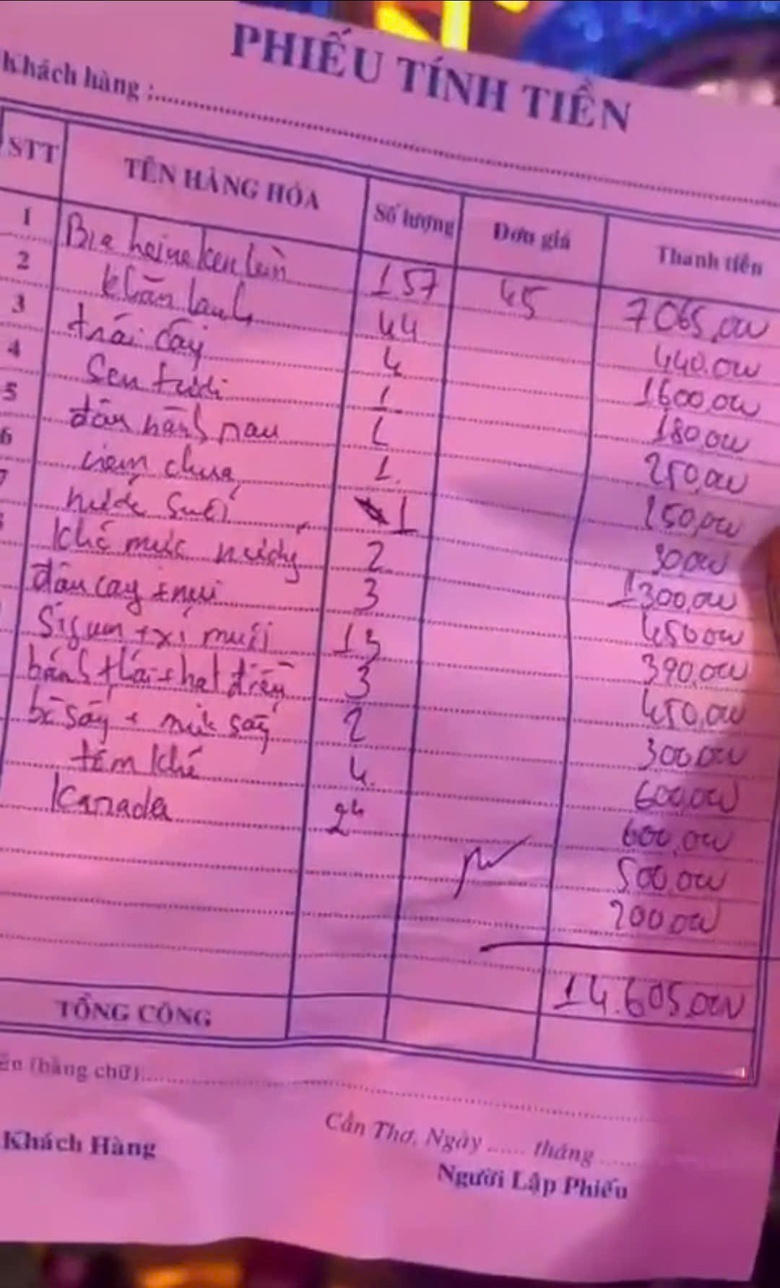 PHIẾU TÍNH TIỀN
Khách hàng :
STT TÊN HÀNG HÓA Số lượng Đơn giá Thanh tiền
1 Bia heineken lùn 157 45 7065,000
2 khăn lạnh 44 440,000
3 trái cây 4 1600,000
4 Sen tươi 1 180,000
5 đậu hành nau 1 250,000
6 nem chua 1 150,000
7 nước suối 1 30,000
8 khô mực nướng 2 1300,000
đậu cay + nui 3 450,000
Sigum + xí muội 13 390,000
bánh tlái + hạt điều 3 450,000
bò sấy + mít sấy 2 300,000
tôm khô 4 600,000
Kanada 24 600,000
500,000
200,000
14.605,000
TỔNG CỘNG
(bằng chữ)
Cần Thơ, Ngày ...... tháng
Khách Hàng Người Lập Phiếu